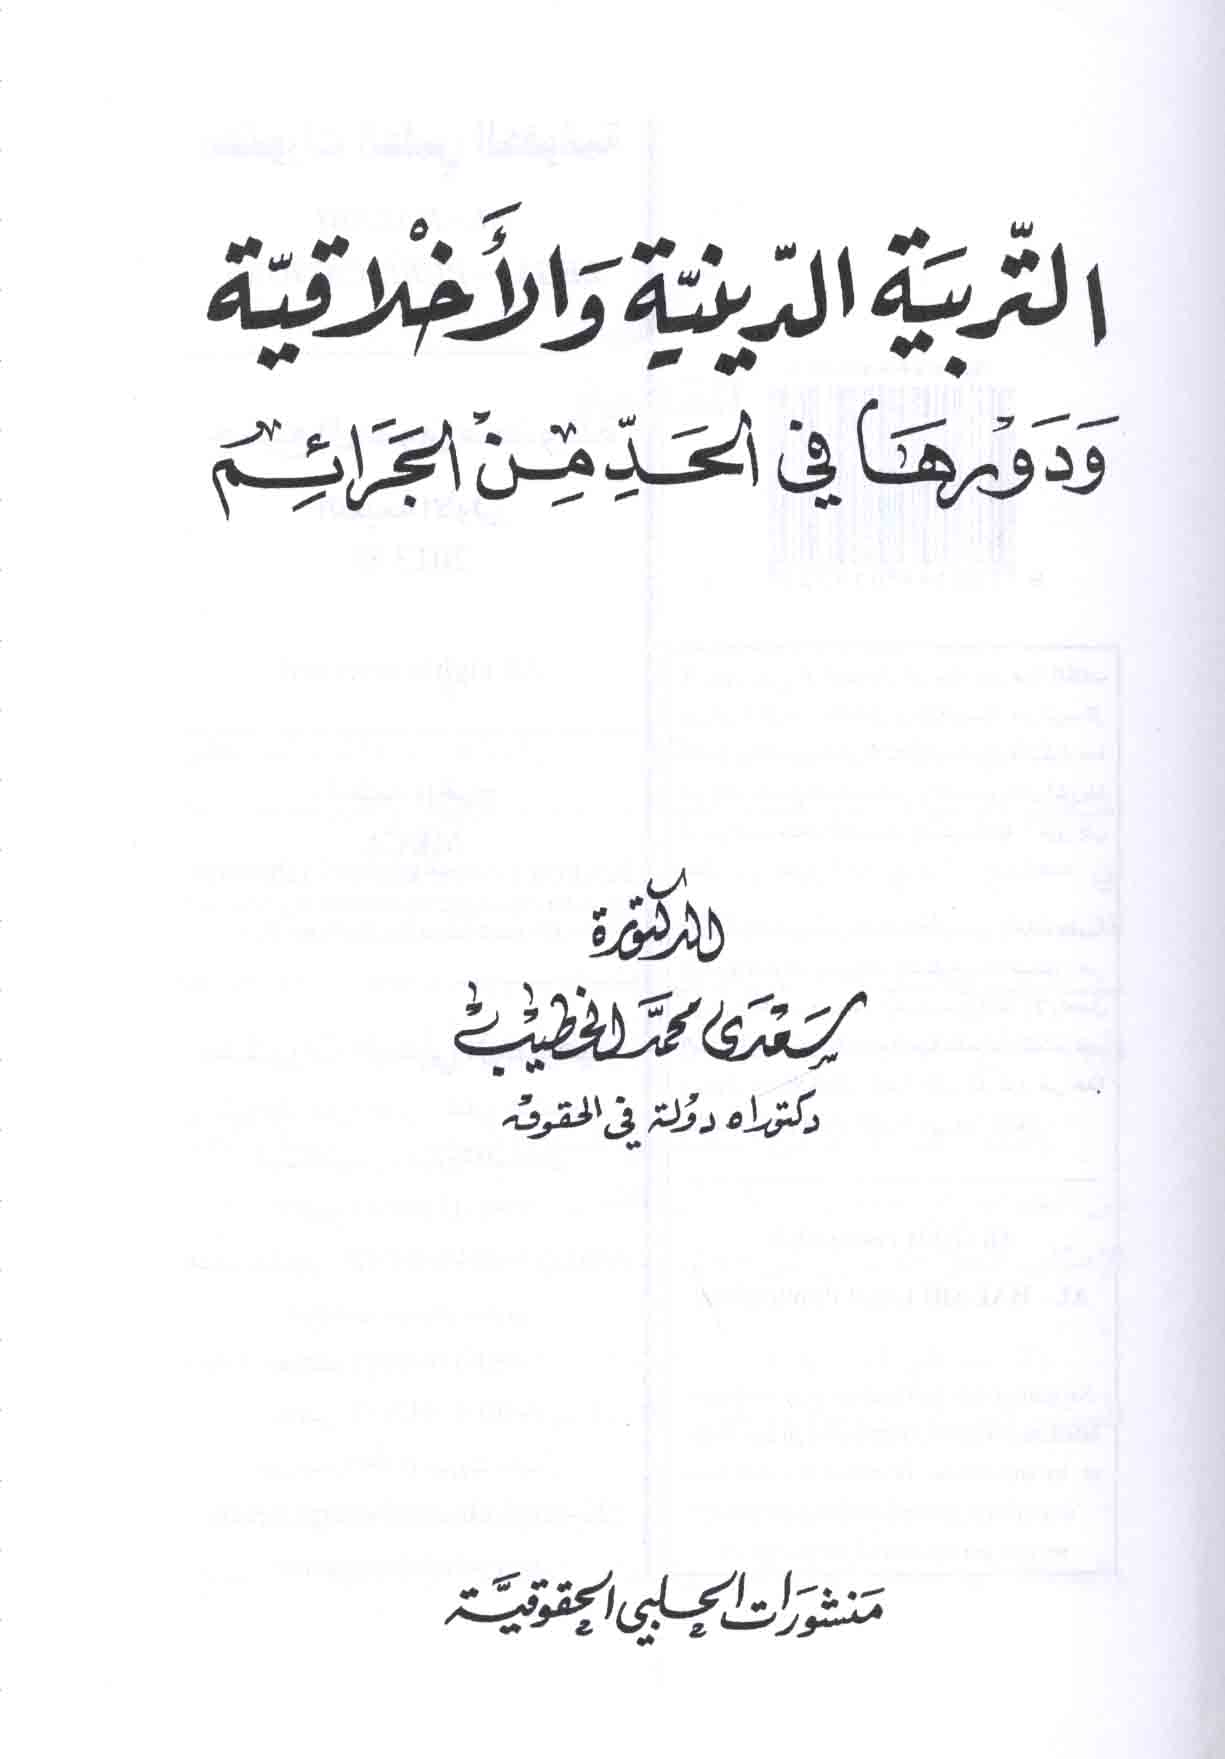 التّربيَة الدّينيَّة وَالأَخْلاقيَّة
وَدَوْرهَا في الحَدِّ مِنْ الجَرَائِم
الدكتورة
سَعْدى محمَّد الخطيْب
دكتوراه دوْلة في الحقوق
مَنشورَات الحلبي الحقوقيَّة